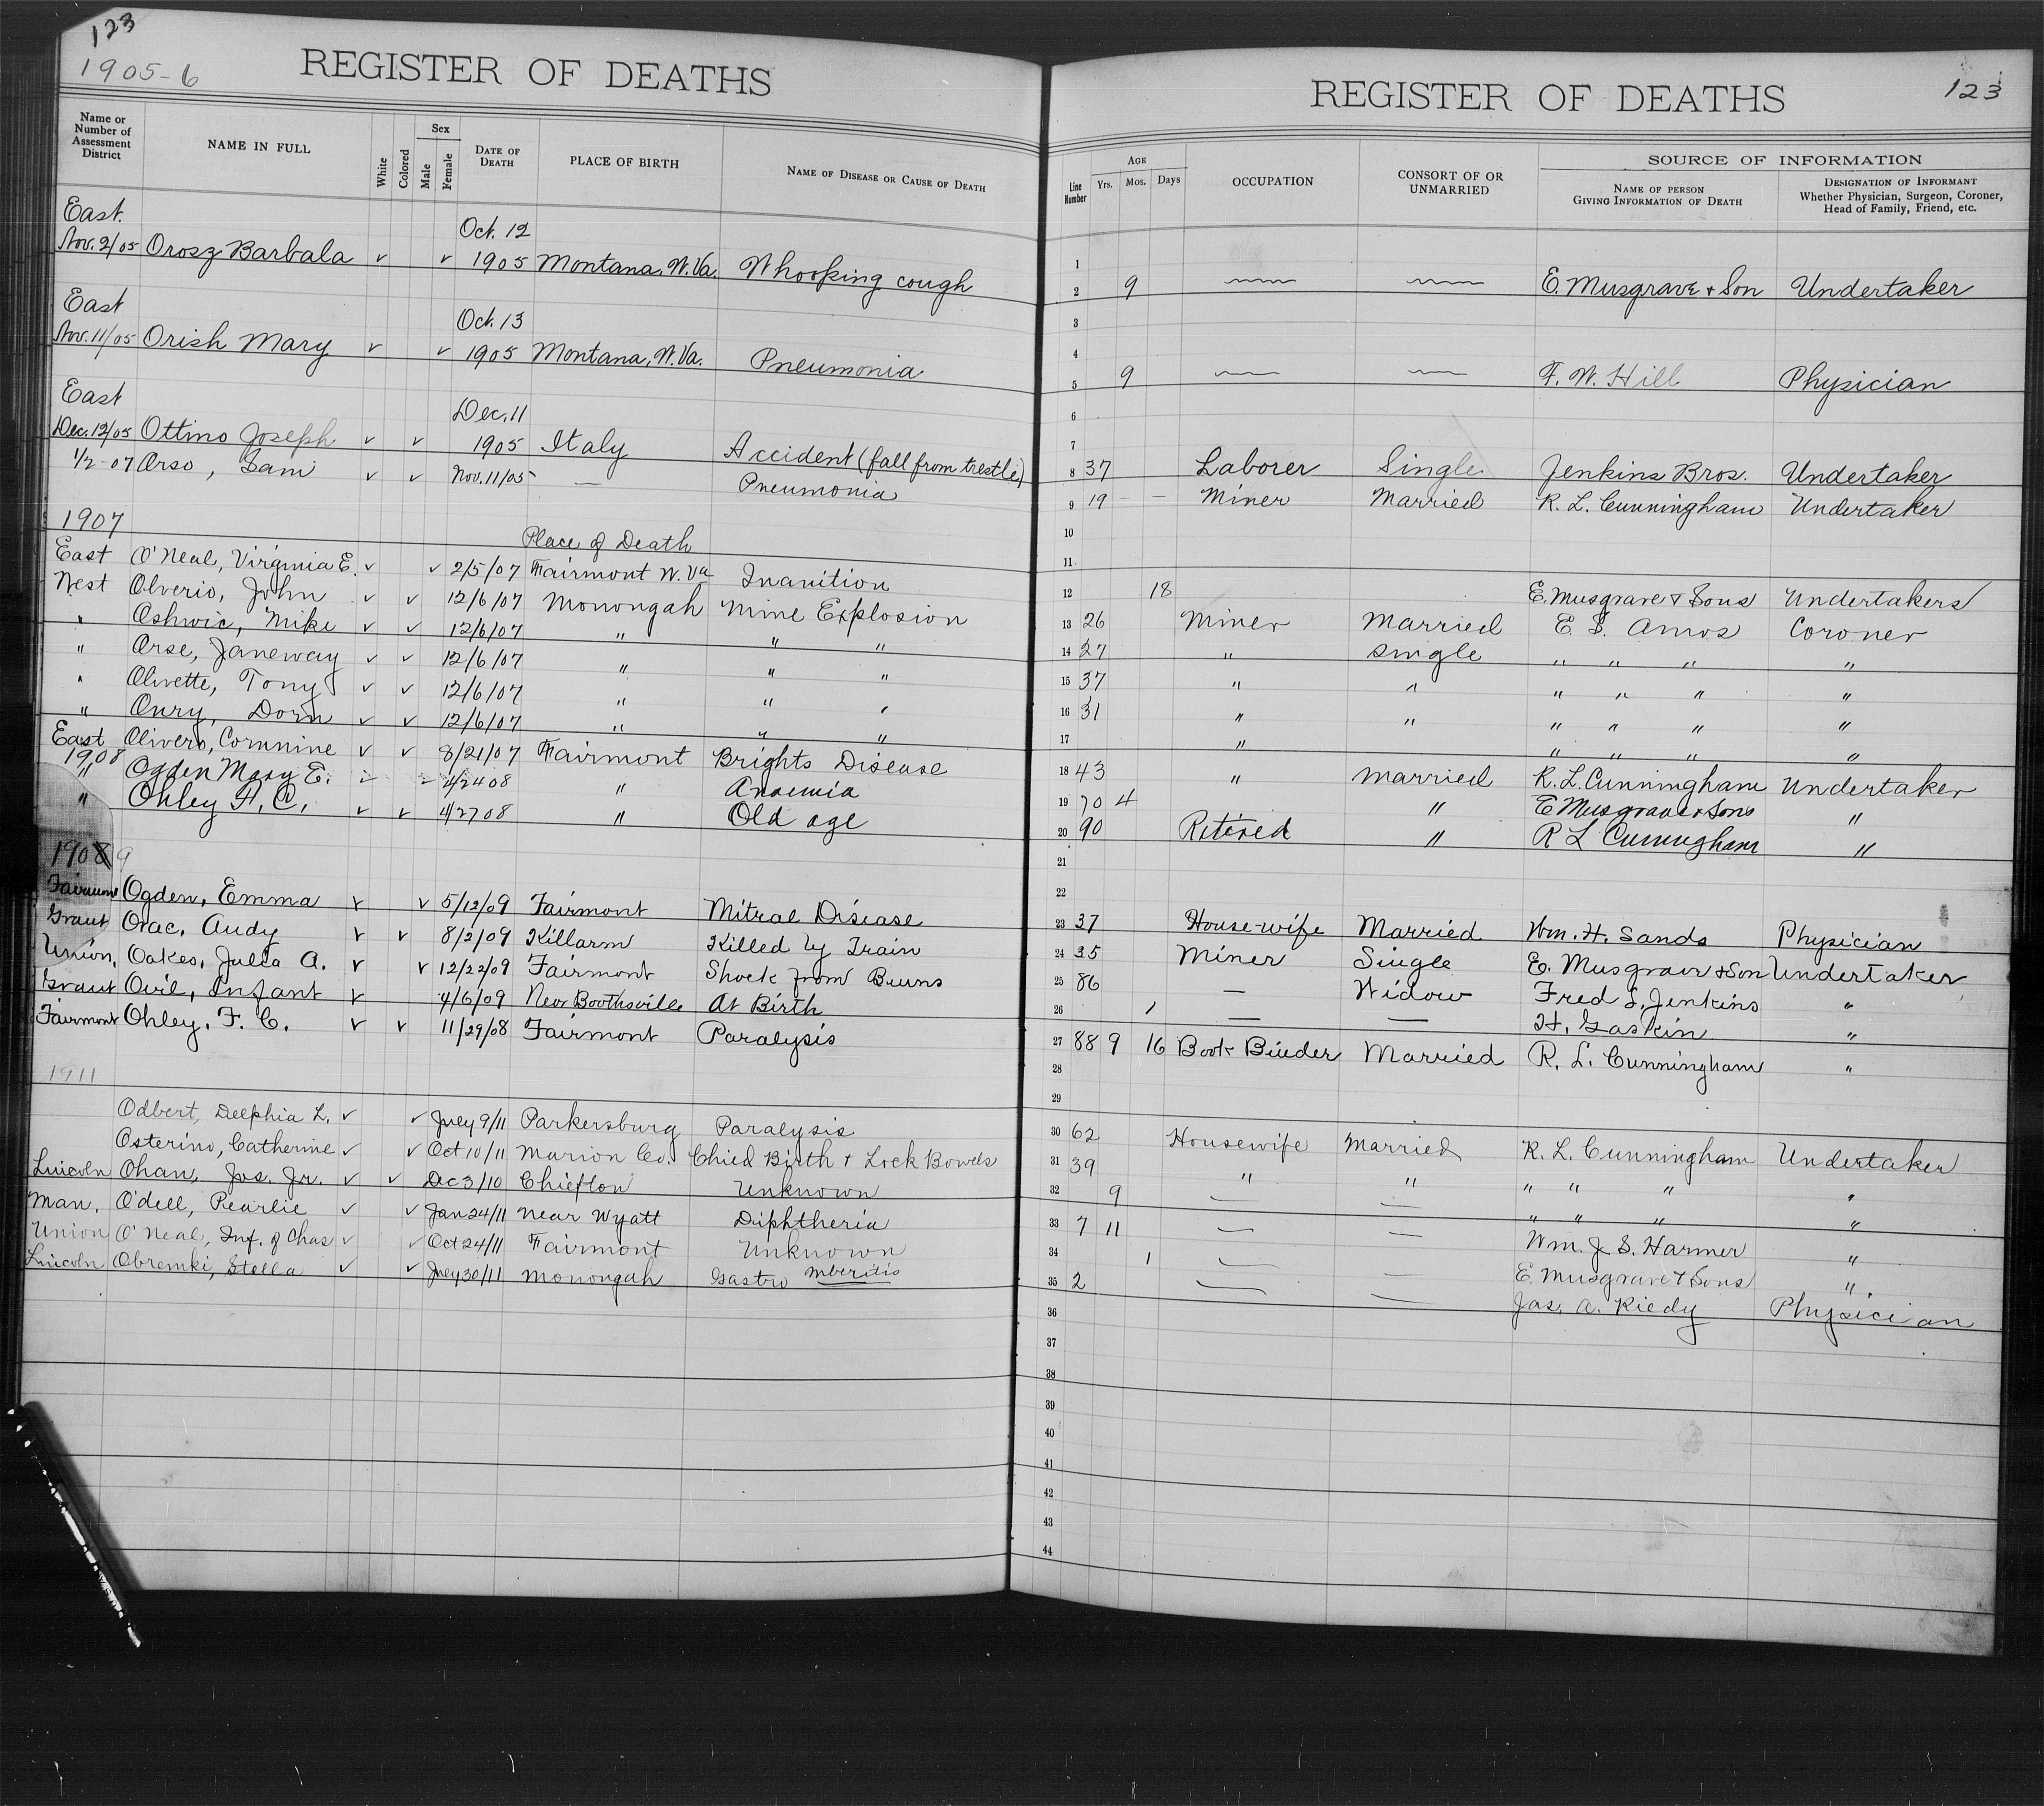 123
1905-6
REGISTER OF DEATHS
Name or Number of Assessment District
NAME IN FULL
White
Colored
Sex
Male
Female
DATE OF DEATH
PLACE OF BIRTH
NAME OF DISEASE OR CAUSE OF DEATH
East.
Oct. 12
Nov. 2/05 Orosz Barbala ✓ ✓ 1905 Montana, W. Va. Whooping cough
East
Oct. 13
Nov. 11/05 Orish Mary ✓ ✓ 1905 Montana, W. Va. Pneumonia
East
Dec. 11
Dec. 12/05 Ottino Joseph ✓ ✓ 1905 Italy Accident (fall from trestle)
1/2-07 Orso, Sam ✓ ✓ Nov. 11/05 — Pneumonia
1907
Place of Death
East O'Neal, Virginia E. ✓ ✓ 2/5/07 Fairmont W. Va Inanition
West Olverio, John ✓ ✓ 12/6/07 Monongah Mine Explosion
" Oshwic, Mike ✓ ✓ 12/6/07 " " "
" Orse, Janeway ✓ ✓ 12/6/07 " " "
" Olivette, Tony ✓ ✓ 12/6/07 " " "
" Onry, Dorn ✓ ✓ 12/6/07 " " "
East Olivero, Cornnine ✓ ✓ 8/21/07 Fairmont Brights Disease
1908
" Ogden Mary E. 4/24 08 " Anaemia
" Ohley F. C. ✓ ✓ 4/27 08 " Old age
1908 9
Fairmont Ogden, Emma ✓ ✓ 5/12/09 Fairmont Mitral Disease
Grant Orac, Andy ✓ ✓ 8/2/09 Killarm Killed by Train
Union, Oakes, Julia A. ✓ ✓ 12/22/09 Fairmont Shock from Burns
Grant Ovil, Infant ✓ 4/6/09 Near Boothsville At Birth
Fairmont Ohley, F. C. ✓ ✓ 11/29/08 Fairmont Paralysis
1911
Odbert, Delphia L. ✓ ✓ July 9/11 Parkersburg Paralysis
Osterino, Catherine ✓ ✓ Oct 10/11 Marion Co. Child Birth + Lock Bowels
Lincoln Ohan, Jos. Jr. ✓ ✓ Dec 3/10 Chiefton Unknown
Man. O'dell, Pearlie ✓ ✓ Jan 24/11 near Wyatt Diphtheria
Union O'Neal, Inf. of Chas ✓ ✓ Oct 24/11 Fairmont Unknown
Lincoln Obremki, Stella ✓ ✓ July 30/11 Monongah Gastro
REGISTER OF DEATHS
123
Line Number
AGE
Yrs.
Mos.
Days
OCCUPATION
CONSORT OF OR UNMARRIED
SOURCE OF INFORMATION
NAME OF PERSON GIVING INFORMATION OF DEATH
DESIGNATION OF INFORMANT
Whether Physician, Surgeon, Coroner, Head of Family, Friend, etc.
1
2 9 E. Musgrave + Son Undertaker
3
4
5 9 F. W. Hill Physician
6
7
8 37 Laborer Single Jenkins Bros. Undertaker
9 19 — — Miner Married R. L. Cunningham Undertaker
10
11
12 18 E. Musgrave & Sons Undertakers
13 26 Miner Married E. S. Amos Coroner
14 27 " Single " " " "
15 37 " " " " " "
16 31 " " " " " "
17 " " " " "
18 43 " Married R. L. Cunningham Undertaker
19 70 4 " E Musgrave & Sons "
20 90 Retired " R L Cunningham "
21
22
23 37 House-wife Married Wm. H. Sands Physician
24 35 Miner Single E. Musgrave & Son Undertaker
25 86 — Widow Fred S. Jenkins "
26 1 — — H. Gaskin "
27 88 9 16 Book Binder Married R. L. Cunningham "
28
29
30 62 Housewife Married R. L. Cunningham Undertaker
31 39 " " " " " "
32 9 — — " " " "
33 7 11 — — Wm. J. S. Harmer "
34 1 — — E. Musgrave & Sons "
35 2 — — Jas. A. Riedy Physician
36
37
38
39
40
41
42
43
44